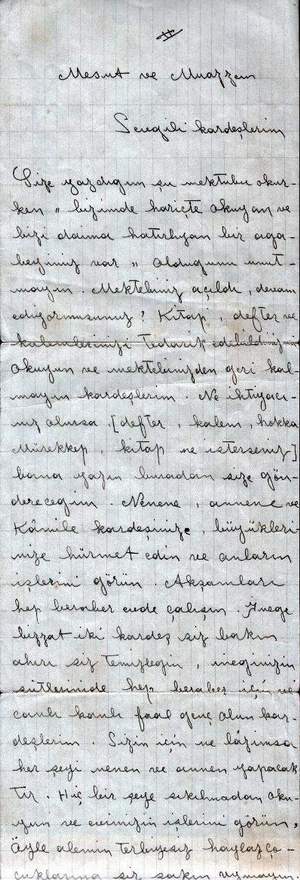 Mesut ve Muazzam
Sevgili kardeşlerim
Size yazdığım şu mektubu okur-
ken " bizimde hariçte okuyan ve
bizi daima hatırlıyan bir ağa-
beyimiz var " olduğunu unut-
mayın. Mektebiniz açıldı, devam
ediyormusunuz? Kitap, defter ve
kalemlerinizi tedarik edebildiniz
okuyun ve mektebinizden geri kal-
mayın kardeşlerim. Ne ihtiyacı-
nız olursa [defter, kalem, hokka
Mürekkep, kitap ne isterseniz]
bana yazın buradan size gön-
dereceğim. Nenene, annene ve
Kâmile kardeşinize, büyükleri-
nize hürmet edin ve onların
işlerini görün. Akşamları
hep beraber evde çalışın. İneğe
bizzat iki kardeş siz bakın
ahırı siz temizleyin, ineğinizin
sütlerinide hep beraber için ve
canlı kanlı faal genç olun kar-
deşlerim. Sizin için ne lâzımsa
her şeyi nenen ve annen yapacak
tır. Hiç bir şeye sıkılmadan oku-
yun ve evimizin işlerini görün.
Öyle alemin terbiyesiz haylaz ço-
cuklarına siz sakın uymayın.